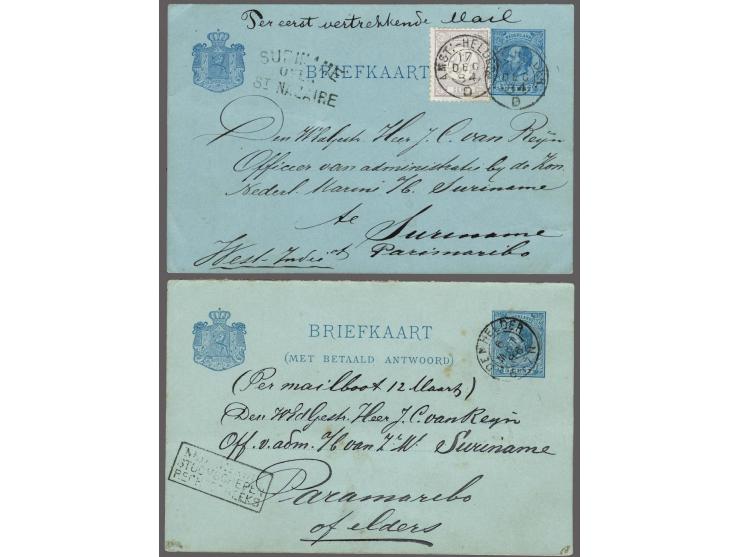 Per eerst vertrekkende Mail
SURINAME
OVER
ST NAZAIRE
BRIEFKAART
AMST.-HELDER
17
DEC
84
D
NEDERLAND
DEC
D
Den WEdGestr. Heer J. C. van Reyn
Officier van administratie by de Kon.
Nederl. Marine H. Suriname
te
Suriname
West-Indië Parimaribo
BRIEFKAART
(MET BETAALD ANTWOORD)
DEN HELDER
(Per mailboot 12 Maart)
Den WEdGestr. Heer J. C. van Reyn
Off. v. adm. H van Z. M. Suriname
Paramaribo
of elders